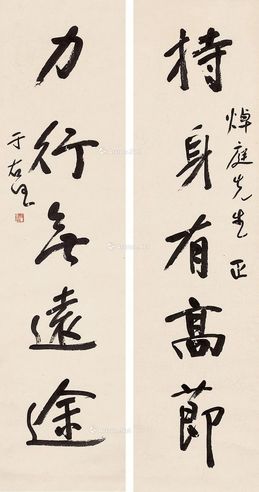 持身有高節
焯庭先生正
力行無遠途
于右任